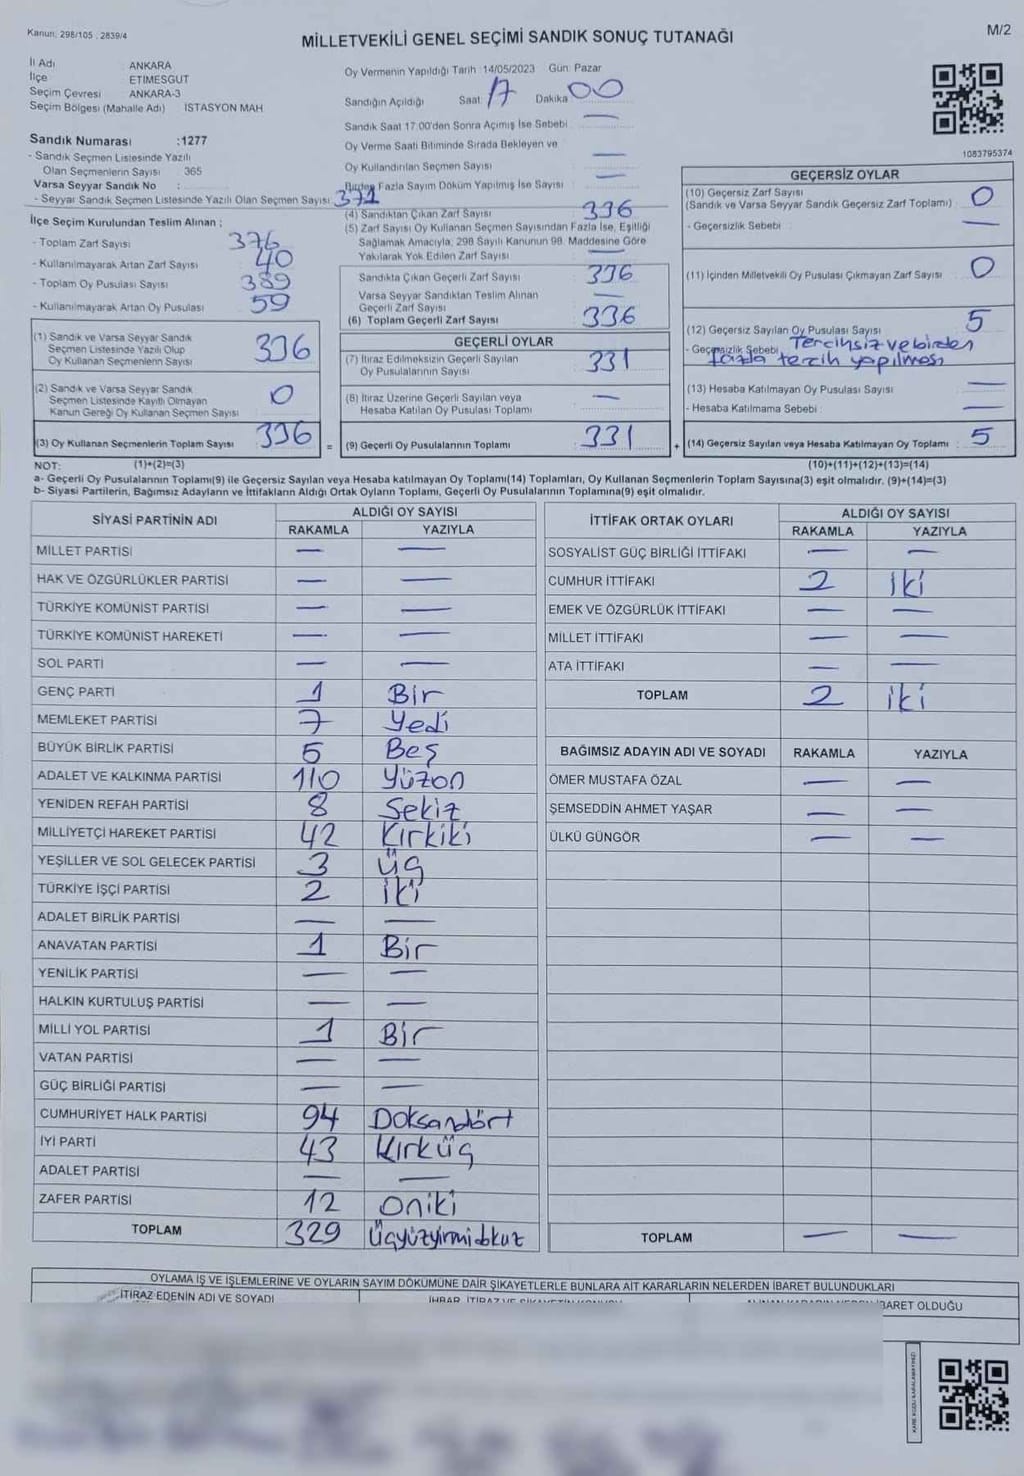 Kanun: 298/105 , 2839/4
M/2
MİLLETVEKİLİ GENEL SEÇİMİ SANDIK SONUÇ TUTANAĞI
İl Adı ANKARA
İlçe ETİMESGUT
Seçim Çevresi ANKARA-3
Seçim Bölgesi (Mahalle Adı) İSTASYON MAH
Sandık Numarası :1277
- Sandık Seçmen Listesinde Yazılı
Olan Seçmenlerin Sayısı 365
Varsa Seyyar Sandık No :
- Seyyar Sandık Seçmen Listesinde Yazılı Olan Seçmen Sayısı 371
İlçe Seçim Kurulundan Teslim Alınan ;
- Toplam Zarf Sayısı 376
- Kullanılmayarak Artan Zarf Sayısı 40
- Toplam Oy Pusulası Sayısı 389
- Kullanılmayarak Artan Oy Pusulası 59
(1) Sandık ve Varsa Seyyar Sandık
Seçmen Listesinde Yazılı Olup
Oy Kullanan Seçmenlerin Sayısı 336
(2) Sandık ve Varsa Seyyar Sandık
Seçmen Listesinde Kayıtlı Olmayan
Kanun Gereği Oy Kullanan Seçmen Sayısı 0
(3) Oy Kullanan Seçmenlerin Toplam Sayısı 336 =
Oy Vermenin Yapıldığı Tarih :14/05/2023 Gün: Pazar
Sandığın Açıldığı Saat: 17 Dakika: 00
Sandık Saat 17:00'den Sonra Açımış İse Sebebi : —
Oy Verme Saati Bitiminde Sırada Bekleyen ve
Oy Kullandırılan Seçmen Sayısı —
Birden Fazla Sayım Döküm Yapılmış İse Sayısı —
(4) Sandıktan Çıkan Zarf Sayısı 336
(5) Zarf Sayısı Oy Kullanan Seçmen Sayısından Fazla İse, Eşitliği
Sağlamak Amacıyla, 298 Sayılı Kanunun 98. Maddesine Göre
Yakılarak Yok Edilen Zarf Sayısı —
Sandıkta Çıkan Geçerli Zarf Sayısı 336
Varsa Seyyar Sandıktan Teslim Alınan
Geçerli Zarf Sayısı —
(6) Toplam Geçerli Zarf Sayısı 336
GEÇERLİ OYLAR
(7) İtiraz Edilmeksizin Geçerli Sayılan
Oy Pusulalarının Sayısı 331
(8) İtiraz Üzerine Geçerli Sayılan veya
Hesaba Katılan Oy Pusulası Toplamı —
(9) Geçerli Oy Pusulalarının Toplamı 331 +
1083795374
GEÇERSİZ OYLAR
(10) Geçersiz Zarf Sayısı
(Sandık ve Varsa Seyyar Sandık Geçersiz Zarf Toplamı) : 0
- Geçersizlik Sebebi : —
(11) İçinden Milletvekili Oy Pusulası Çıkmayan Zarf Sayısı 0
(12) Geçersiz Sayılan Oy Pusulası Sayısı 5
- Geçersizlik Sebebi Tercihsiz ve birden
fazla tercih yapılması
(13) Hesaba Katılmayan Oy Pusulası Sayısı —
- Hesaba Katılmama Sebebi : —
(14) Geçersiz Sayılan veya Hesaba Katılmayan Oy Toplamı : 5
NOT: (1)+(2)=(3) (10)+(11)+(12)+(13)=(14)
a- Geçerli Oy Pusulalarının Toplamı(9) ile Geçersiz Sayılan veya Hesaba katılmayan Oy Toplamı(14) Toplamları, Oy Kullanan Seçmenlerin Toplam Sayısına(3) eşit olmalıdır. (9)+(14)=(3)
b- Siyasi Partilerin, Bağımsız Adayların ve İttifakların Aldığı Ortak Oyların Toplamı, Geçerli Oy Pusulalarının Toplamına(9) eşit olmalıdır.
SİYASİ PARTİNİN ADI ALDIĞI OY SAYISI
RAKAMLA YAZIYLA
MİLLET PARTİSİ — —
HAK VE ÖZGÜRLÜKLER PARTİSİ — —
TÜRKİYE KOMÜNİST PARTİSİ — —
TÜRKİYE KOMÜNİST HAREKETİ — —
SOL PARTİ — —
GENÇ PARTİ 1 Bir
MEMLEKET PARTİSİ 7 Yedi
BÜYÜK BİRLİK PARTİSİ 5 Beş
ADALET VE KALKINMA PARTİSİ 110 Yüzon
YENİDEN REFAH PARTİSİ 8 Sekiz
MİLLİYETÇİ HAREKET PARTİSİ 42 Kırkiki
YEŞİLLER VE SOL GELECEK PARTİSİ 3 Üç
TÜRKİYE İŞÇİ PARTİSİ 2 İki
ADALET BİRLİK PARTİSİ — —
ANAVATAN PARTİSİ 1 Bir
YENİLİK PARTİSİ — —
HALKIN KURTULUŞ PARTİSİ — —
MİLLİ YOL PARTİSİ 1 Bir
VATAN PARTİSİ — —
GÜÇ BİRLİĞİ PARTİSİ — —
CUMHURİYET HALK PARTİSİ 94 Doksandört
İYİ PARTİ 43 Kırküç
ADALET PARTİSİ — —
ZAFER PARTİSİ 12 Oniki
TOPLAM 329 Üçyüzyirmidokuz
İTTİFAK ORTAK OYLARI ALDIĞI OY SAYISI
RAKAMLA YAZIYLA
SOSYALİST GÜÇ BİRLİĞİ İTTİFAKI — —
CUMHUR İTTİFAKI 2 İki
EMEK VE ÖZGÜRLÜK İTTİFAKI — —
MİLLET İTTİFAKI — —
ATA İTTİFAKI — —
TOPLAM 2 iki
BAĞIMSIZ ADAYIN ADI VE SOYADI RAKAMLA YAZIYLA
ÖMER MUSTAFA ÖZAL — —
ŞEMSEDDİN AHMET YAŞAR — —
ÜLKÜ GÜNGÖR — —
TOPLAM — —
OYLAMA İŞ VE İŞLEMLERİNE VE OYLARIN SAYIM DÖKÜMÜNE DAİR ŞİKAYETLERLE BUNLARA AİT KARARLARIN NELERDEN İBARET BULUNDUKLARI
İTİRAZ EDENİN ADI VE SOYADI
İBARET OLDUĞU